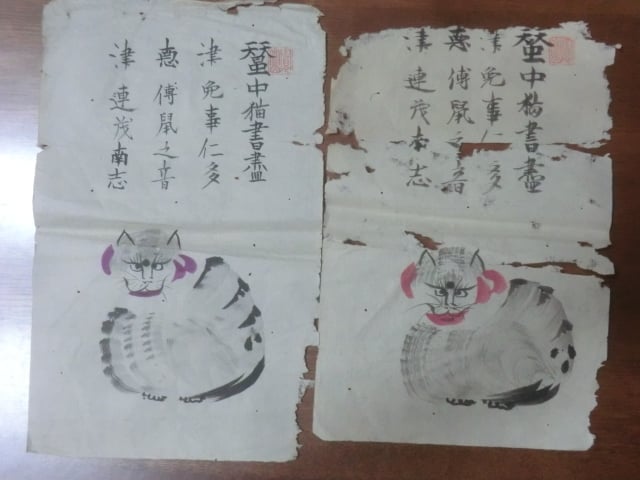 蚕中猫書盡
津免事仁多
恵傅鼠之音
津連茂南志
蚕中猫書盡
津免事仁多
恵傅鼠之音
津連茂南志